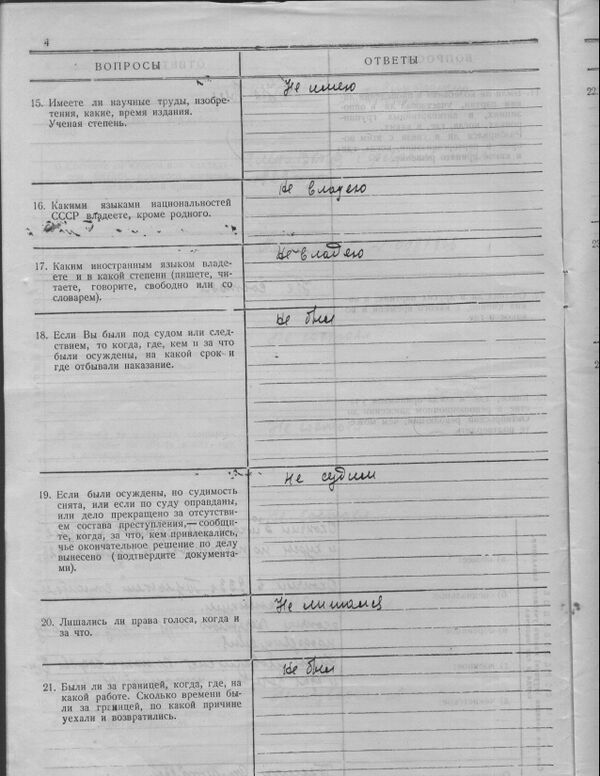 4
ВОПРОСЫ
ОТВЕТЫ
15. Имеете ли научные труды, изобре-
тения, какие, время издания.
Ученая степень.
Не имею
16. Какими языками национальностей
СССР владеете, кроме родного.
Не владею
17. Каким иностранным языком владе-
ете и в какой степени (пишете, чи-
таете, говорите, свободно или со
словарем).
Не владею
18. Если Вы были под судом или след-
ствием, то когда, где, кем и за что
были осуждены, на какой срок и
где отбывали наказание.
Не был
19. Если были осуждены, но судимость
снята, или если по суду оправданы,
или дело прекращено за отсутстви-
ем состава преступления,— сообщи-
те, когда, за что, кем привлекались,
чье окончательное решение по делу
вынесено (подтвердите документа-
ми).
Не судим
20. Лишались ли права голоса, когда и
за что.
Не лишался
21. Были ли за границей, когда, где, на
какой работе. Сколько времени бы-
ли за границей, по какой причине
уехали и возвратились.
Не был
22.
23